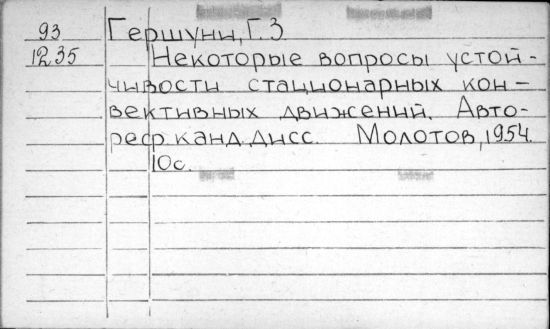 93 Гершуни, Г. З
1235 Некоторые вопросы устой-
чивости стационарных кон-
вективных движений. Авто-
реф. канд. дисс. Молотов, 1954.
10с.